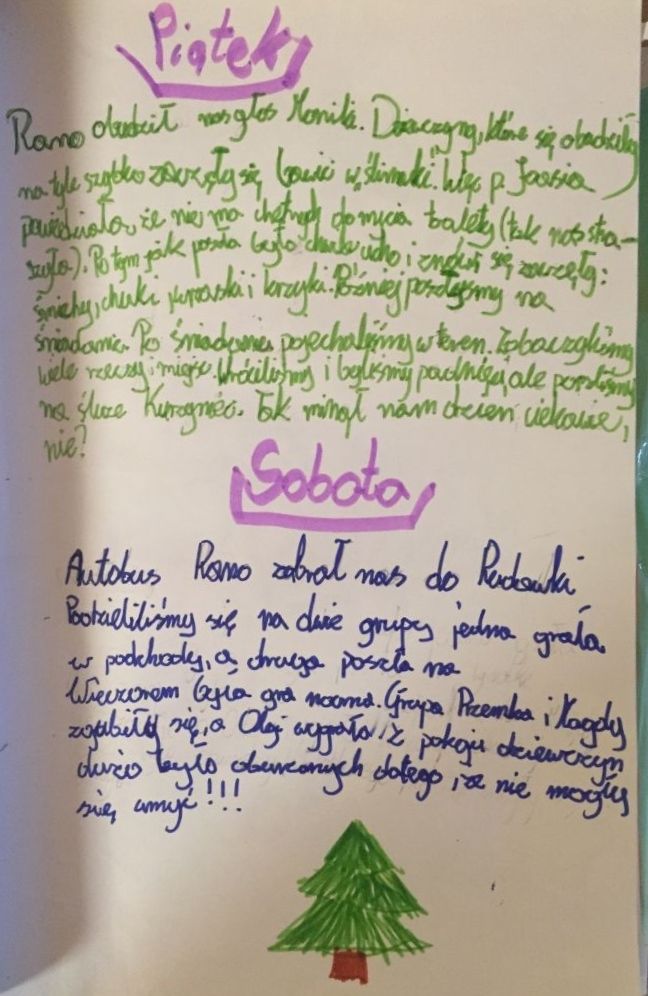 Piątek
Rano obudził nas głos Moniki. Dziewczyny, które się obudziły
na tyle szybko zaczęły się bawić w "ślimaki". Więc p. Joasia
powiedziała, że nie ma chętnych do mycia toalety (tak nas stra-
szyła). Po tym jak poszła było cicho i znów się zaczęły:
śmichy, chichi i krzyki. Później poszłyśmy na
śniadanie. Po śniadaniu pojechaliśmy w teren. Zobaczyliśmy
wiele rzeczy i miejsc. Wróciliśmy i byliśmy padnięci, ale poszliśmy
na śluzę Kurzyniec. Tak minął nam dzień ciekawie,
nie?
Sobota
Autobus Rano zabrał nas do Rudawki
Podzieliliśmy się na dwie grupy jedna grała
w podchody, a druga poszła na
Wieczorem była gra nocna. Grupa Przemka i Magdy
zgubiły się, a Olgi wygrała. Z pokoju dziewczyn
dużo było oburzonych dlatego, że nie mogły
się umyć!!!